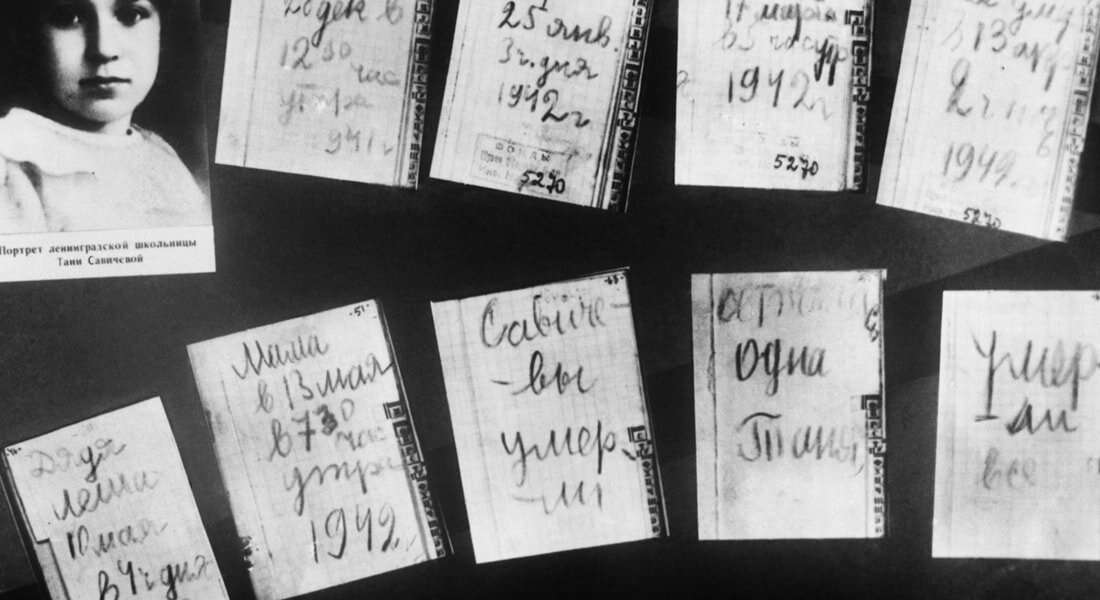 Портрет ленинградской школьницы
Тани Савичевой
28 дек в
12 30 час
утра
941 г
25 янв.
3 ч. дня
1942 г
ФОНДЫ
5270
17 марта
в 5 час утр
1942 г
5270
в 13 апр
2 ч ноч
1942
5270
Дядя
Леша
10 мая
в 4 ч дня
-51-
Мама
в 13 мая
в 7 30 час
утра
1942 г
Савиче
-вы
умер
-ли
одна
Таня
Умер
-ли
все